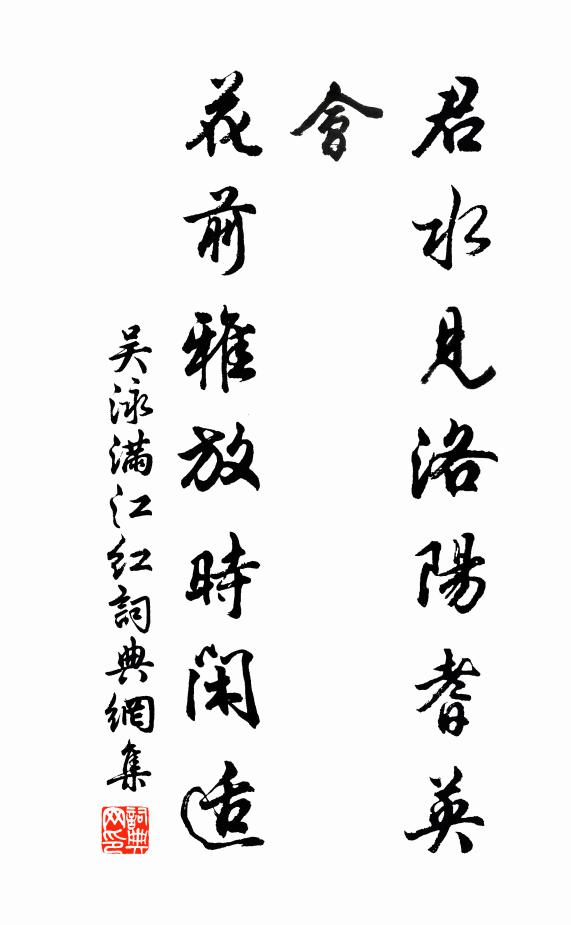 君水見洛陽耆英
會
花前雅放時閑适
吳泳滿江紅詞典網集
詞典网印